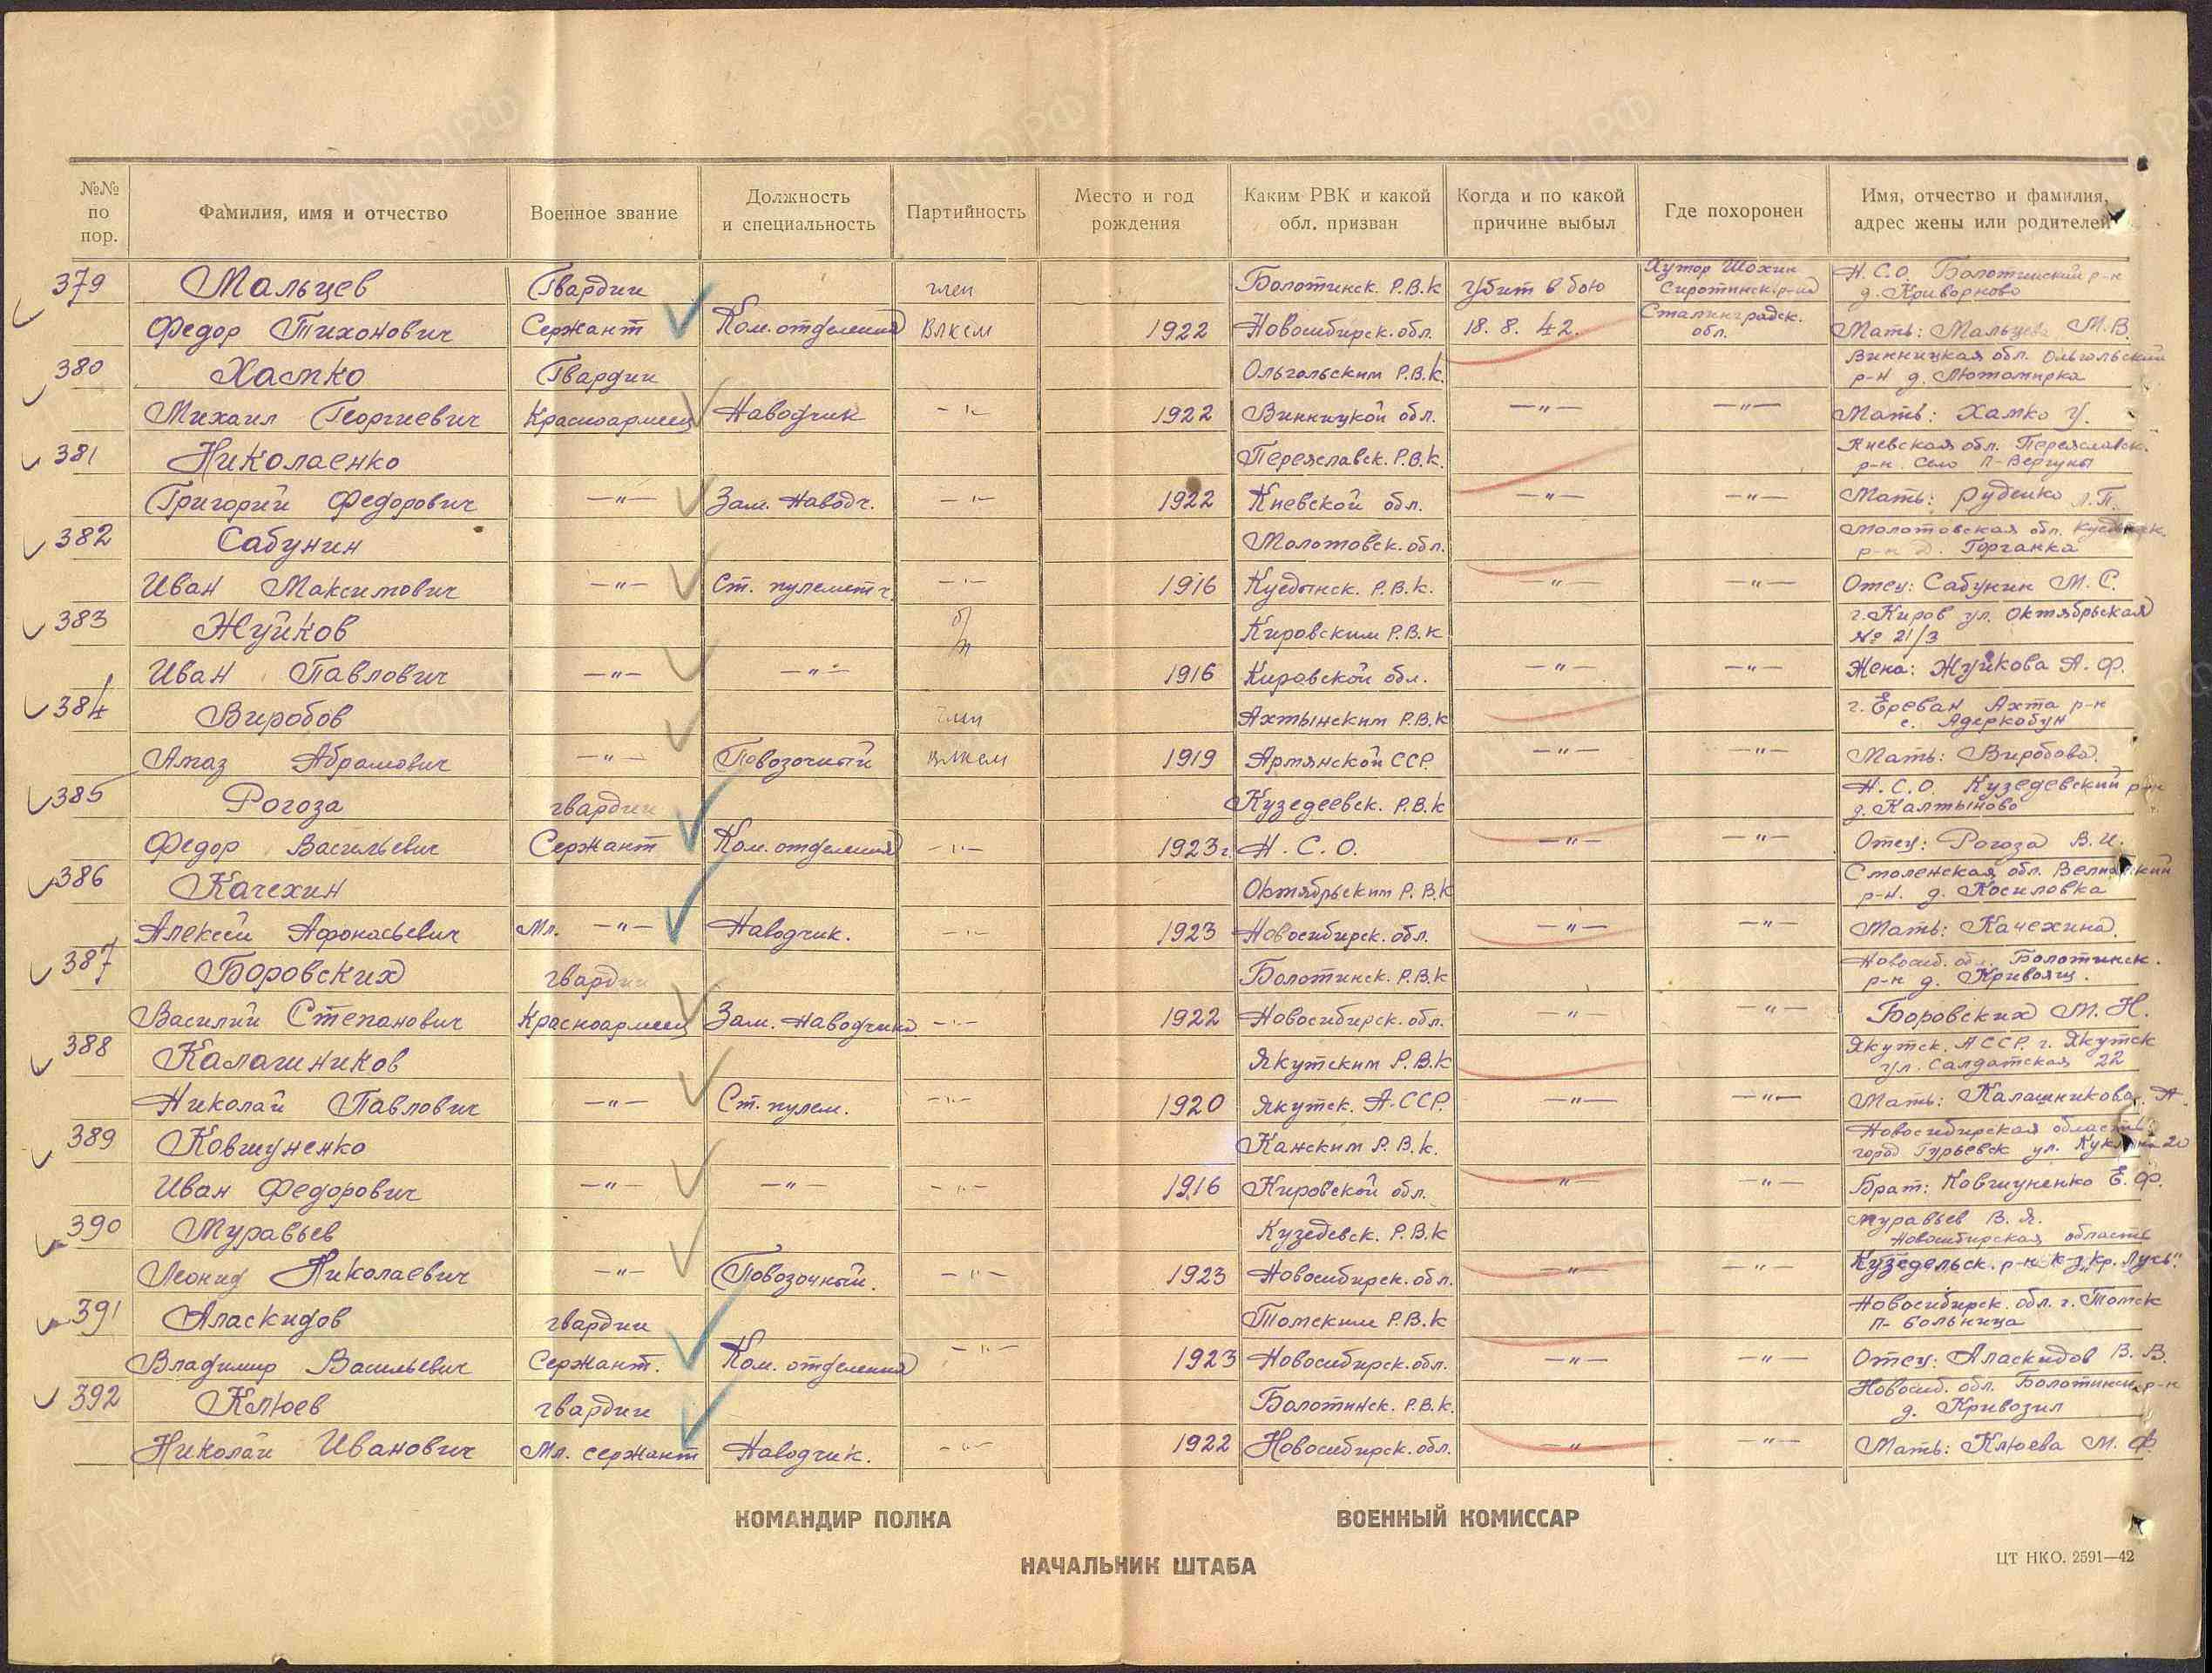 №№ по пор.
Фамилия, имя и отчество
Военное звание
Должность и специальность
Партийность
Место и год рождения
Каким РВК и какой обл. призван
Когда и по какой причине выбыл
Где похоронен
Имя, отчество и фамилия, адрес жены или родителей
379 Мальцев Гвардии член Болотинск. Р.В.К Убит в бою Хутор Шохин Сиротинск. р-на Н.С.О. Болотинский р-н д. Криворново
Федор Тихонович Сержант Ком. отделения ВЛКСМ 1922 Новосибирск. обл. 18. 8. 42. Сталинградск. обл. Мать: Мальцева М.В.
380 Хамко Гвардии Ольгольским Р.В.К. Винницкая обл. Ольгольский р-н д. Лютомирка
Михаил Георгиевич Красноармеец Наводчик -"- 1922 Винницкой обл. -"- -"- Мать: Хамко У.
381 Николаенко Переяславск. Р.В.К. Киевская обл. Переяславск. р-н. Село П-Вергуны
Григорий Федорович -"- Зам. Наводч. -"- 1922 Киевской обл. -"- -"- Мать: Руденко Л.П.
382 Сабунин Молотовск. обл. Молотовская обл. р-н д. Горганка
Иван Максимович -"- Ст. пулеметч. -"- 1916 Куединск. Р.В.К. -"- -"- Отец: Сабунин М. С.
383 Жуйков б/п Кировским Р.В.К г. Киров ул. Октябрьская № 21/3
Иван Павлович -"- -"- 1916 Кировской обл. -"- -"- Жена: Жуйкова А. Ф.
384 Виробов член Ахтынским Р.В.К г. Ереван Ахта р-н с. Адеркобун
Амаз Абрамович -"- Повозочный ВЛКСМ 1919 Армянской ССР. -"- -"- Мать: Виробова.
385 Рогоза гвардии Кузедеевск. Р.В.К Н.С.О. Кузедевский р-н д. Калтыново
Федор Васильевич Сержант Ком. отделения -"- 1923г. Н. С. О. -"- -"- Отец: Рогоза В.И.
386 Качехин Октябрьским Р.В.К Смоленская обл. р-н. д. Косиловка
Алексей Афонасьевич Мл. -"- Наводчик. -"- 1923 Новосибирск. обл. -"- -"- Мать: Качехина.
387 Боровских гвардии Болотинск. Р.В.К Новосиб. обл. Болотинск. р-н д. Кривоящ.
Василий Степанович Красноармеец Зам. Наводчика -"- 1922 Новосибирск. обл. -"- -"- Боровских М. Н.
388 Калашников Якутским Р.В.К Якутск. АССР. г. Якутск ул. Салдатская 22
Николай Павлович -"- Ст. пулем. -"- 1920 Якутск. А.ССР. -"- -"- Мать: Калашникова. А.
389 Ковшуненко Канским Р.В.К. Новосибирская область город Гурьевск ул. 20
Иван Федорович -"- -"- -"- 1916 Кировской обл. -"- -"- Брат: Ковшуненко Е. Ф.
390 Муравьев Кузедевск. Р.В.К Муравьев В. Я. Новосибирская область
Леонид Николаевич -"- Повозочный. -"- 1923 Новосибирск. обл. -"- -"- Кузедельск. р-н к-з „Кр. Лусь"
391 Аласкидов гвардии Томским Р.В.К Новосибирск. обл. г. Томск п-больница
Владимир Васильевич Сержант. Ком. отделения -"- 1923 Новосибирск. обл. -"- -"- Отец: Аласкидов В. В.
392 Клюев гвардии Болотинск. Р.В.К. Новосиб. обл. Болотинск р-н д. Кривозил
Николай Иванович Мл. сержант Наводчик. -"- 1922 Новосибирск. обл. -"- -"- Мать: Клюева М. Ф.
КОМАНДИР ПОЛКА
ВОЕННЫЙ КОМИССАР
НАЧАЛЬНИК ШТАБА
ЦТ НКО. 2591—42